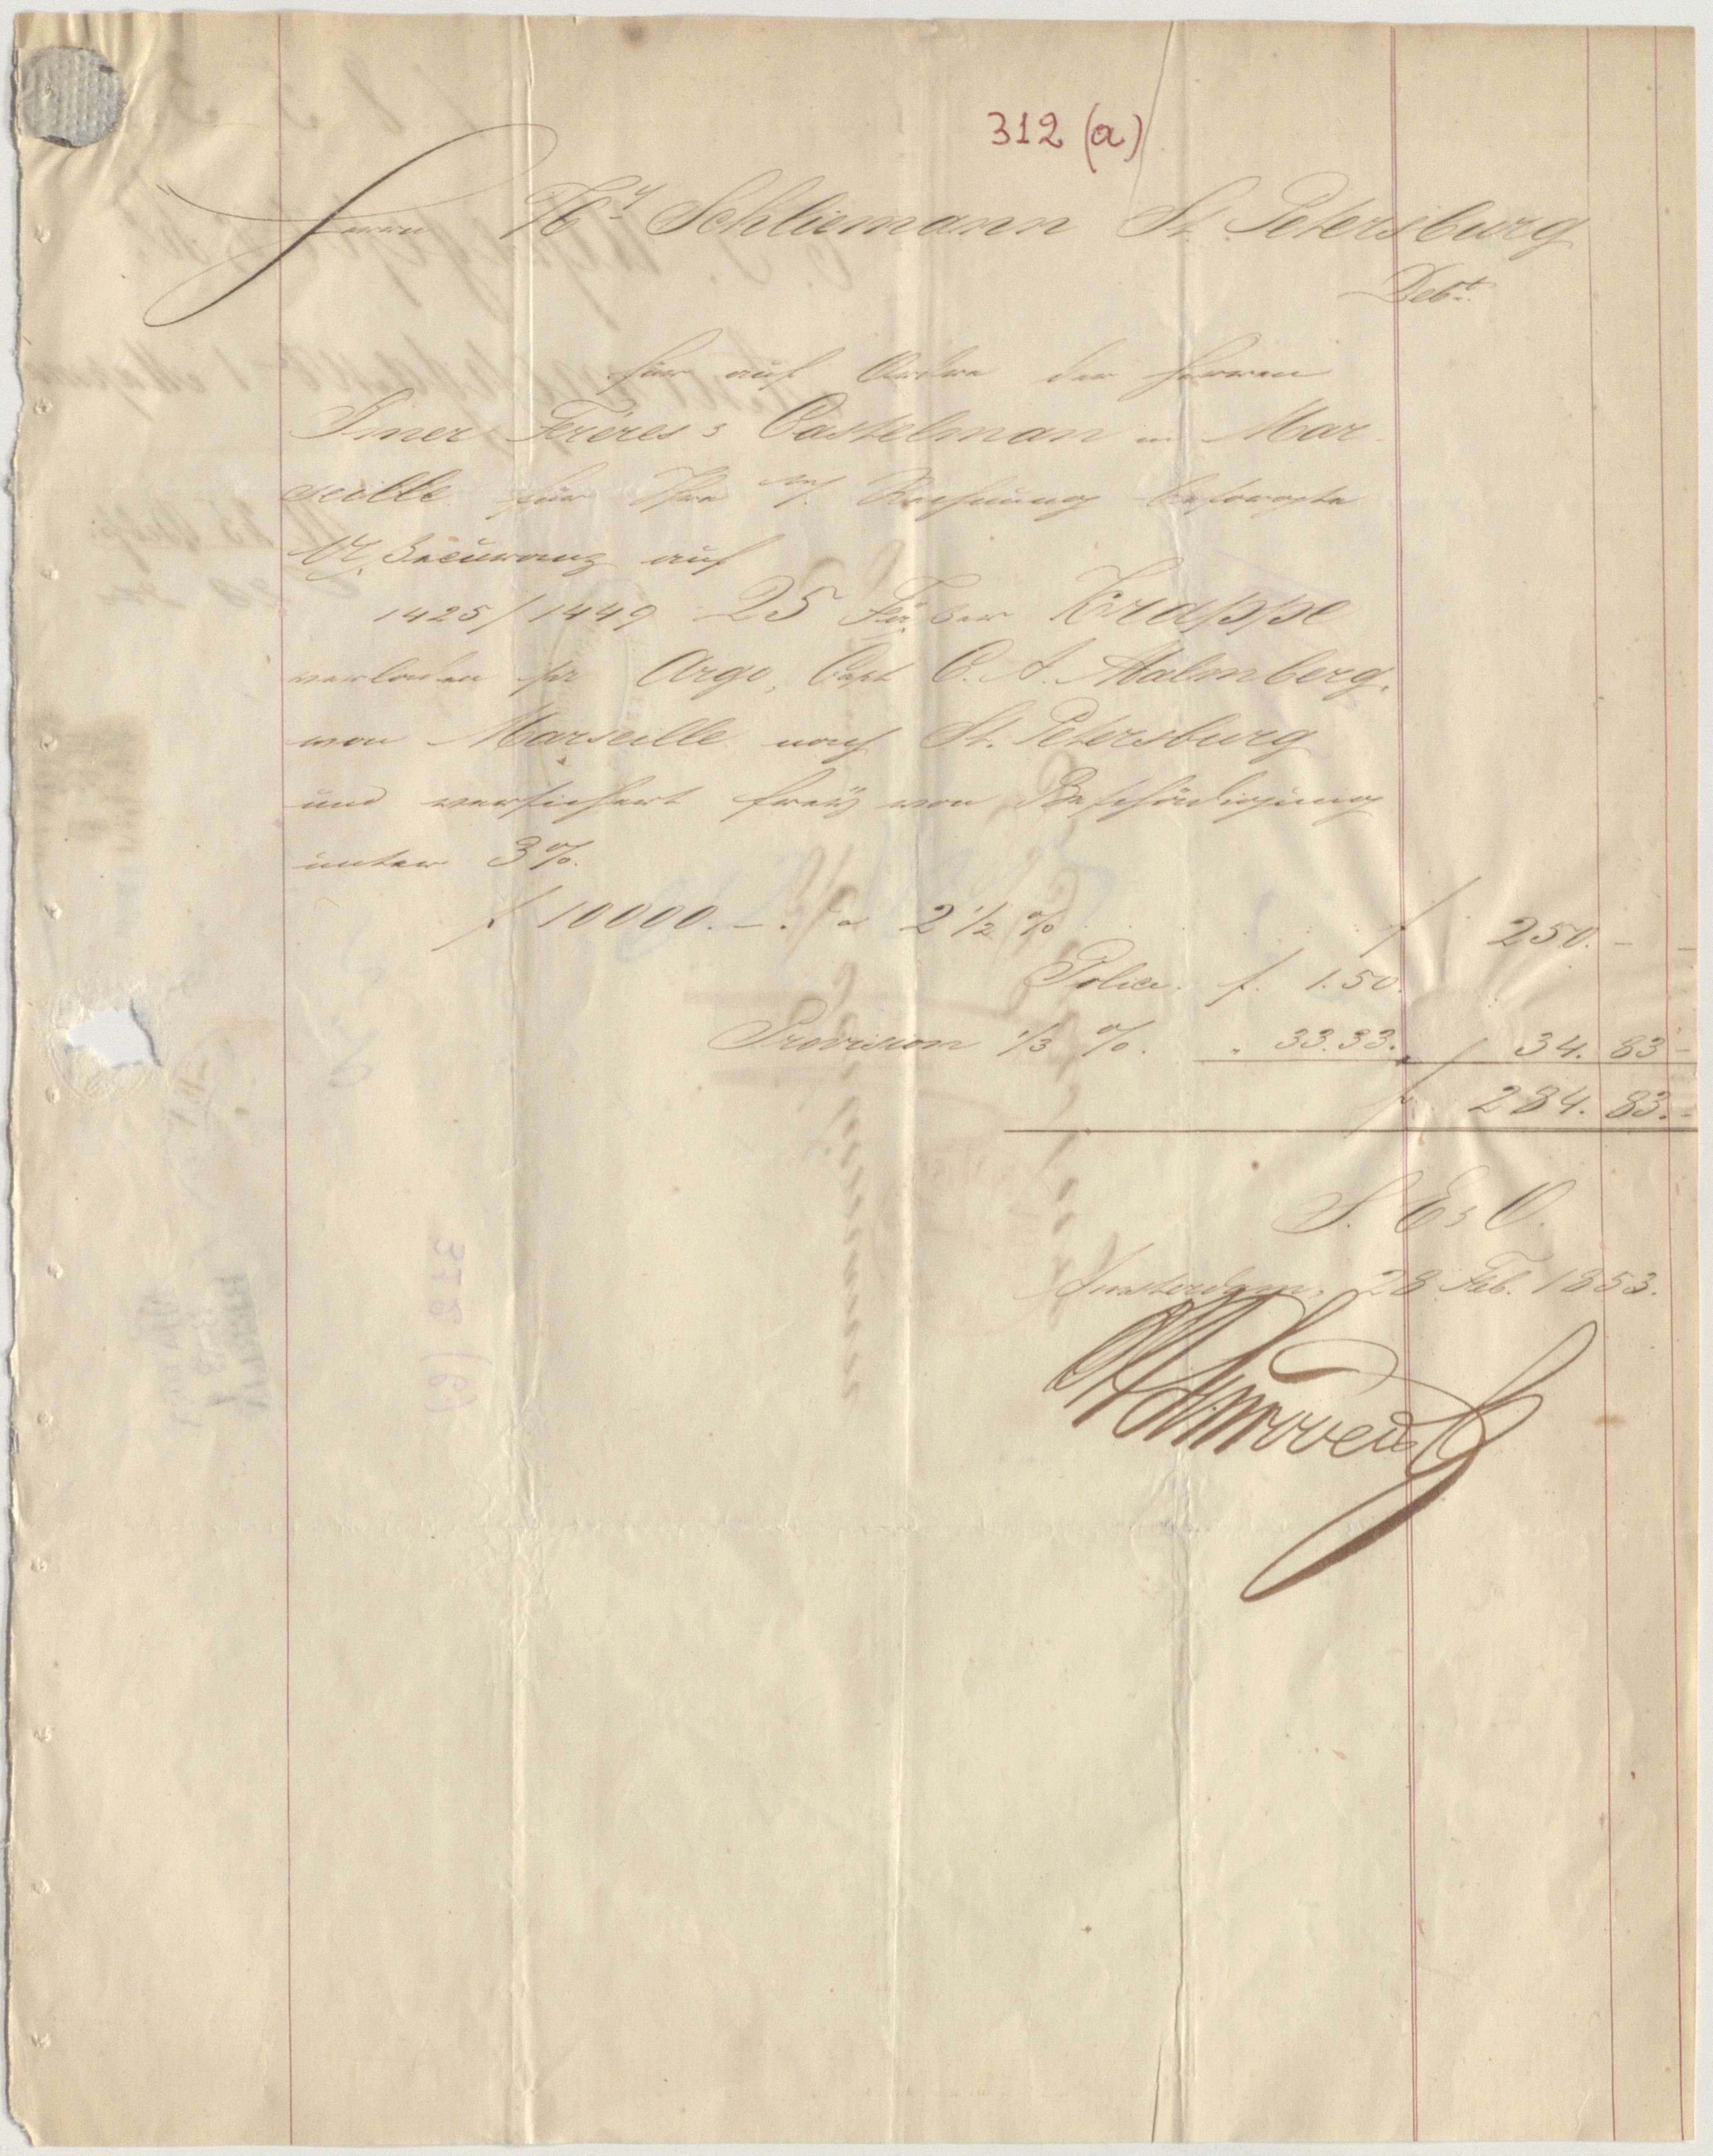 312 (a)
Herrn Hy Schliemann St. Petersburg
Debt.
für auf Ordre der Herren
Siner Frères & Castelman in Mar-
seille für Ihre Rechnung besorgte
Assecuranz auf
1425/1449 25 Fässer Krappe
verladen pr Argo, Capt C. A. Malmberg,
von Marseille nach St. Petersburg
und versichert freÿ von Beschädigung
unter 3%.
f 10000.-. a 2 1/2 % f 250.-
Police. f. 1.50.
Provision 1/3 %. " 33.33. f 34.83-
f. 284.83.-
S. E & O.
Amsterdam, 28 Feb. 1853.